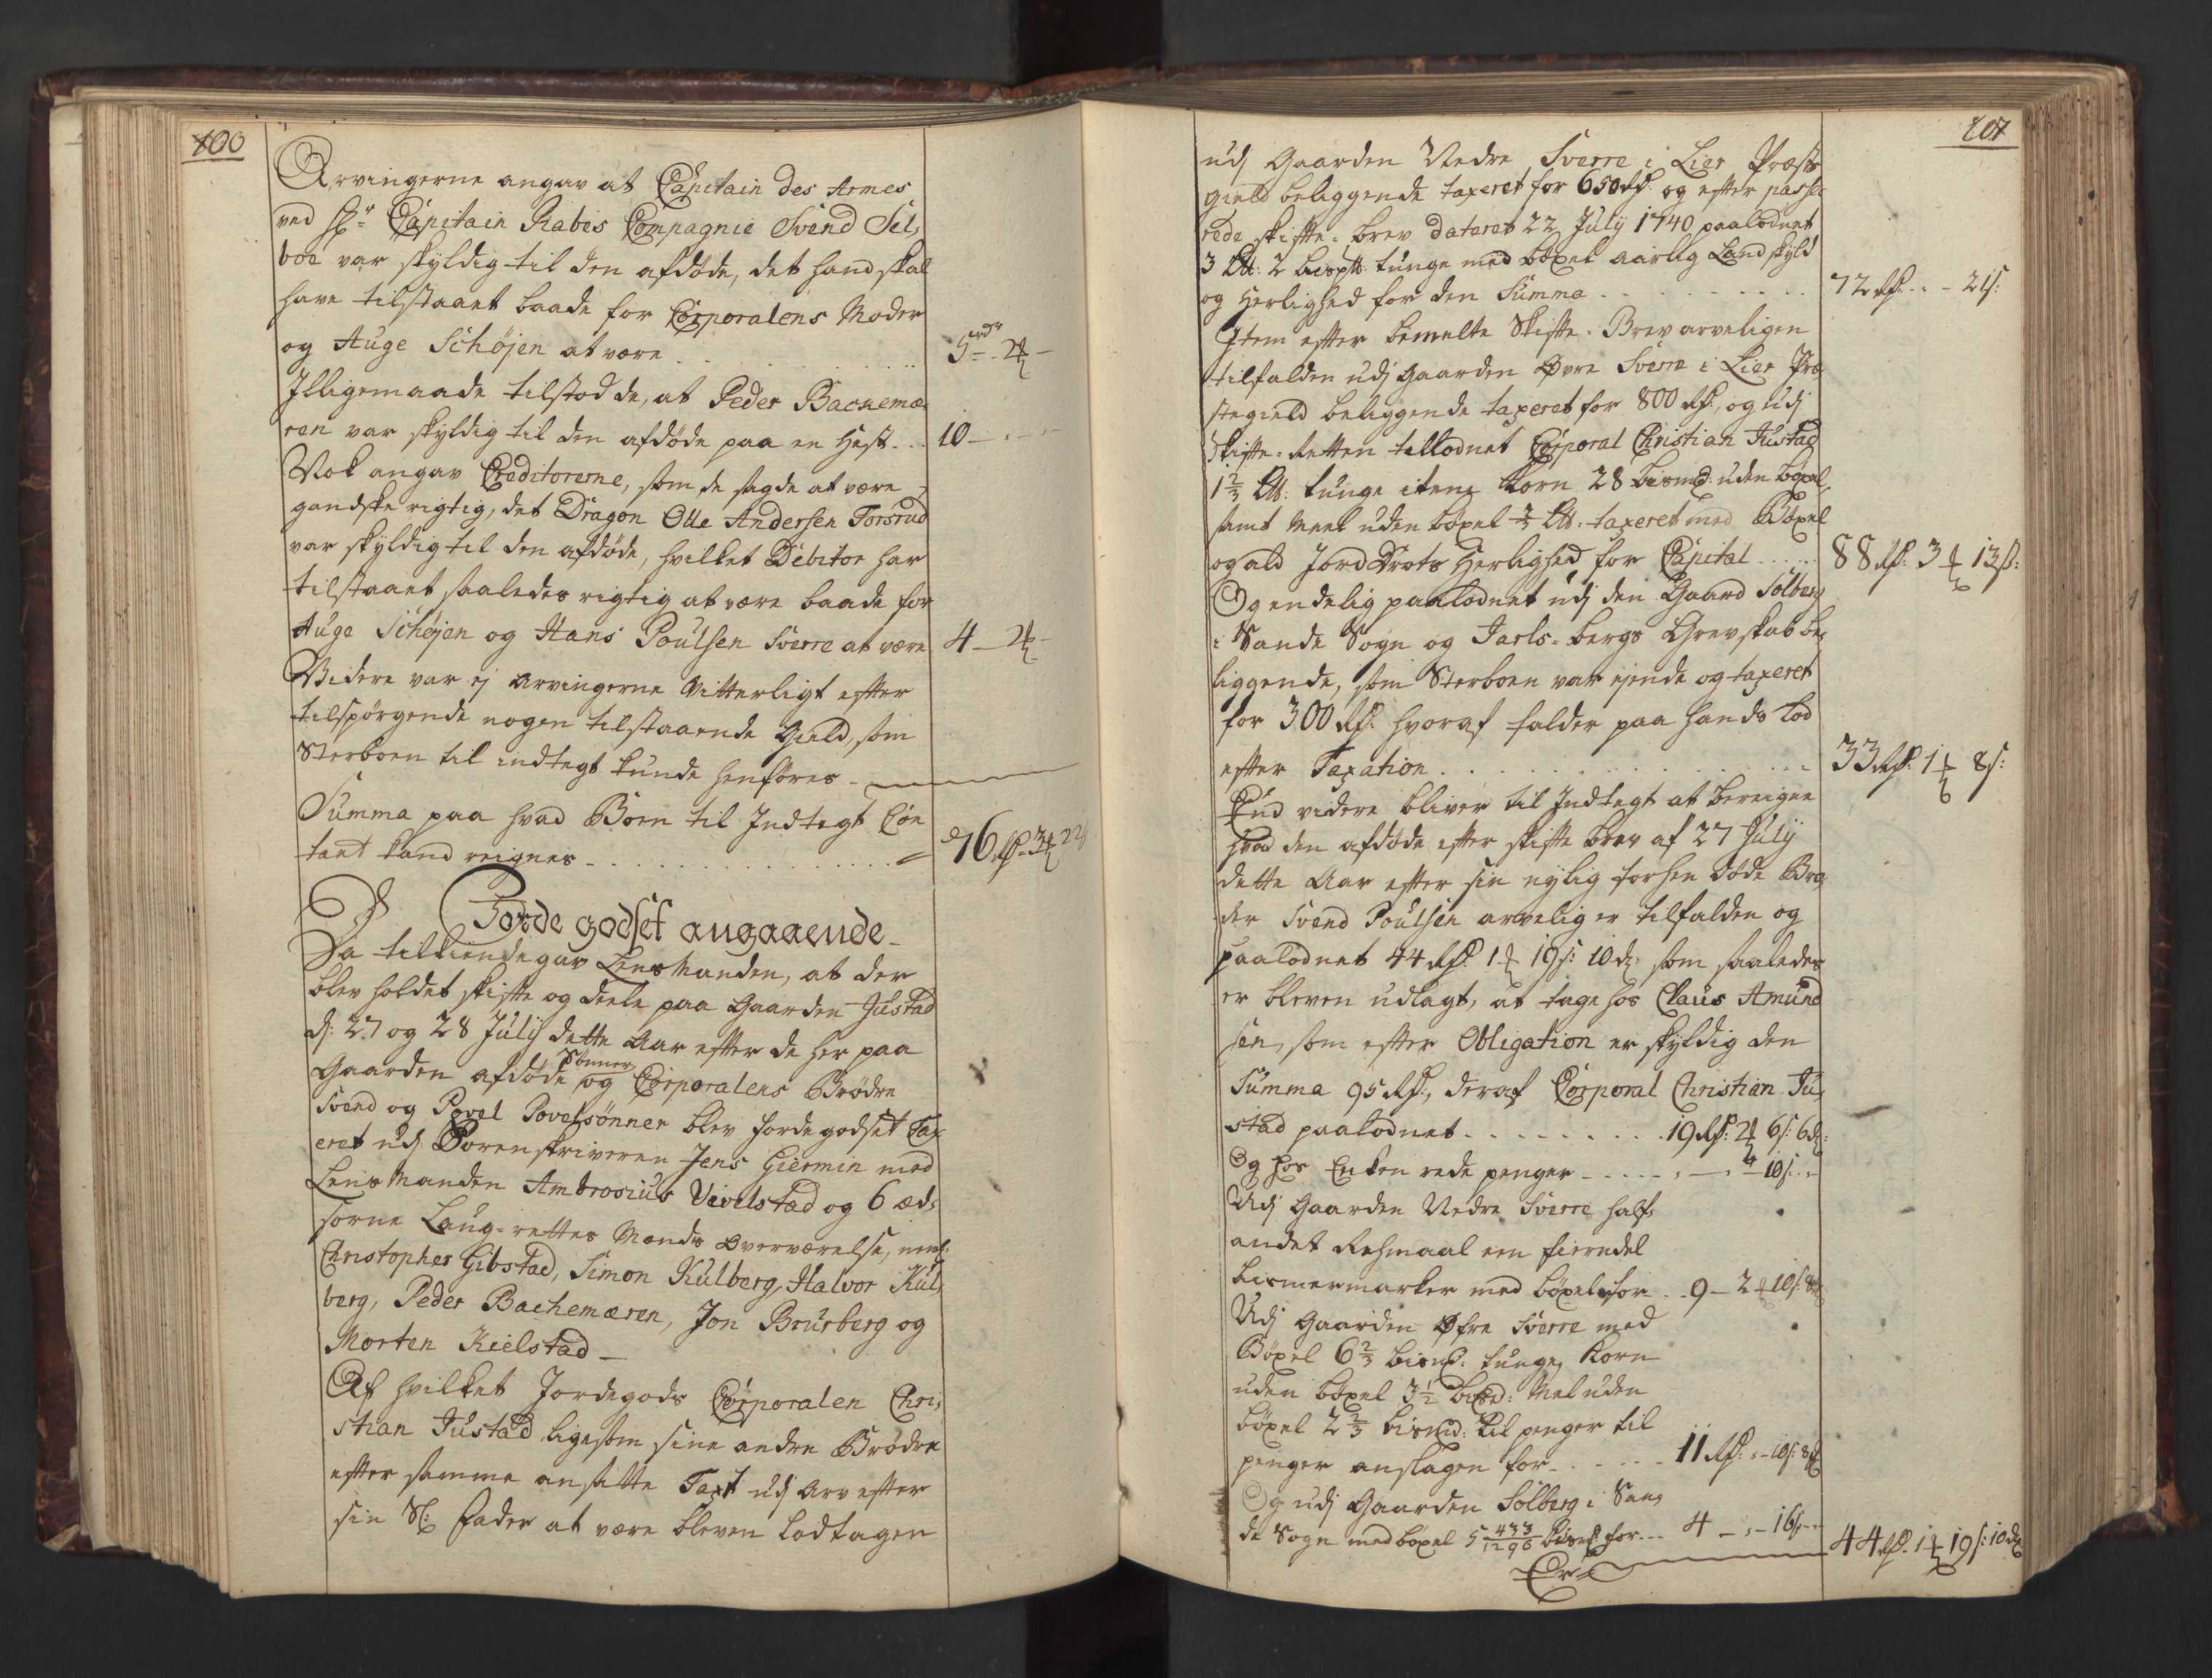 100
Arvingerne angav at Capitain des Armes
ved Hr: Capitain Rabes Compagnie Svend Sel,
boe var skyldig til den afdøde, det hand skal
have tilstaaet baade for Corporalens Moder
og Auge Schøjen at være . . . 5 rdr - 2 -
Jlligemaade tilstod de, at Peder Bachemæ,
ren var skyldig til den afdøde paa en Hest . . . 10 - - -
Nok angav Creditorerne, som de sagde at være
gandske rigtig, det Dragon Olle Andersen Forsrud
var skyldig til den afdøde, hvilket Debitor har
tilstaaet saaledes rigtig at være baade for
Auge Schøjen og Hans Poulsen Sverre at være 4 - 2 -
Videre var ej Arvingerne Vitterligt efter
tilspørgende nogen tilstaaende Gield, som
Sterboen til indtegt kunde henføres -
Summa paa hvad Boen til Jndtegt Con
tant kand reignes - . . . 76 Rd. 3 22
Jorde godset angaaende -
Da tilkiendegav LensManden, at der
blev holdet skifte og deele paa Gaarden Justad
d: 27 og 28 Julij dette Aar efter de her paa
Gaarden afdøde Sønner og Corporalens Brødre
Svend og Povel Povelsønner blev Jordegodset Tax
eret udj Sorenskriveren Jens Giermin med
LensManden Ambrosius Uevelstad og 6 æd,
sorne Laug-rettes Mænds Overværelse, neml:
Christopher Gibstad, Simon Kulberg, Halvor Kul,
berg, Peder Bachemæren, Jon Brurberg og
Morten Kielstad -
Af hvilket Jordegods Corporalen Chri,
stian Justad ligesom sine andre Brødre
efter samme ansatte Taxt udj Arv efter
sin Sl: Fader at være bleven Lodtagen
101
udj Gaarden Nedre Sverre i Lier Præste
gield beliggende taxeret for 650 Rd. og efter passe
rede skifte-brev dateret 22 July 1740 paalodnet
3 2 tunge med bøxel aarlig Landskyld
og Herlighed for den Summa . . . 72 Rd. - - 21 s:
Jtem efter bemelte Skifte-Brev arveligen
tilfalden udj Gaarden Øvre Sverre i Lier Præ
stegield beliggende taxeret for 800 Rd., og udj
Skifte-Retten tillodnet Corporal Christian Justad
1 2/3 tunge item Korn 28 bismd: uden bøxel,
samt Meel uden bøxel taxeret med Bøxel
og ald JordDrots Herlighed for Capital . . . 88 Rd: 3 13 s:
Og endelig paalodnet udj den Gaard Solberg
i Sande Sogn og Jarls-bergs Grevskab be,
liggende, som Sterboen var ejende og taxeret
for 300 Rd. hvoraf falder paa hands Lod
efter Taxation . . . 33 Rd: 1 8 s:
End videre bliver til Jndtegt at bereigne
hvad den afdøde efter skifte brev af 27 July
dette Aar efter sin nylig forhen døde Bro,
der Svend Poulsen arvelig er tilfalden og
paalodnet 44 Rd. 1 19 s: 10 d: som saaledes
er bleven udlagt, at tage hos Claus Amund
sen, som efter Obligation er skyldig den
Summa 95 Rd., deraf Corporal Christian Ju,
stad paalodnet . . . 19 Rd: 2 6 s: 6 d:
Og hos Enken rede penger - . . . 10 s: -
Udj Gaarden Nedre Sverre half,
andet Rehmaal een fierndel
bismermarker med bøxel for . . 9 - 2 10 s: 8
Udj Gaarden Øfre Sverre med
Bøxel 6 2/3 bismd: tunge, Korn
uden bøxel 3 1/2 bismd: Mel uden
bøxel 2 2/3 bismd: til penger til
penger anslagen for - . . . 11 Rd: - 19 s: 8
Og udj Gaarden Solberg i San,
de Sogn med bøxel 5 433/1296 for . . . 4 - - 16 s - 44 Rd. 1 19 s: 10 d
Er